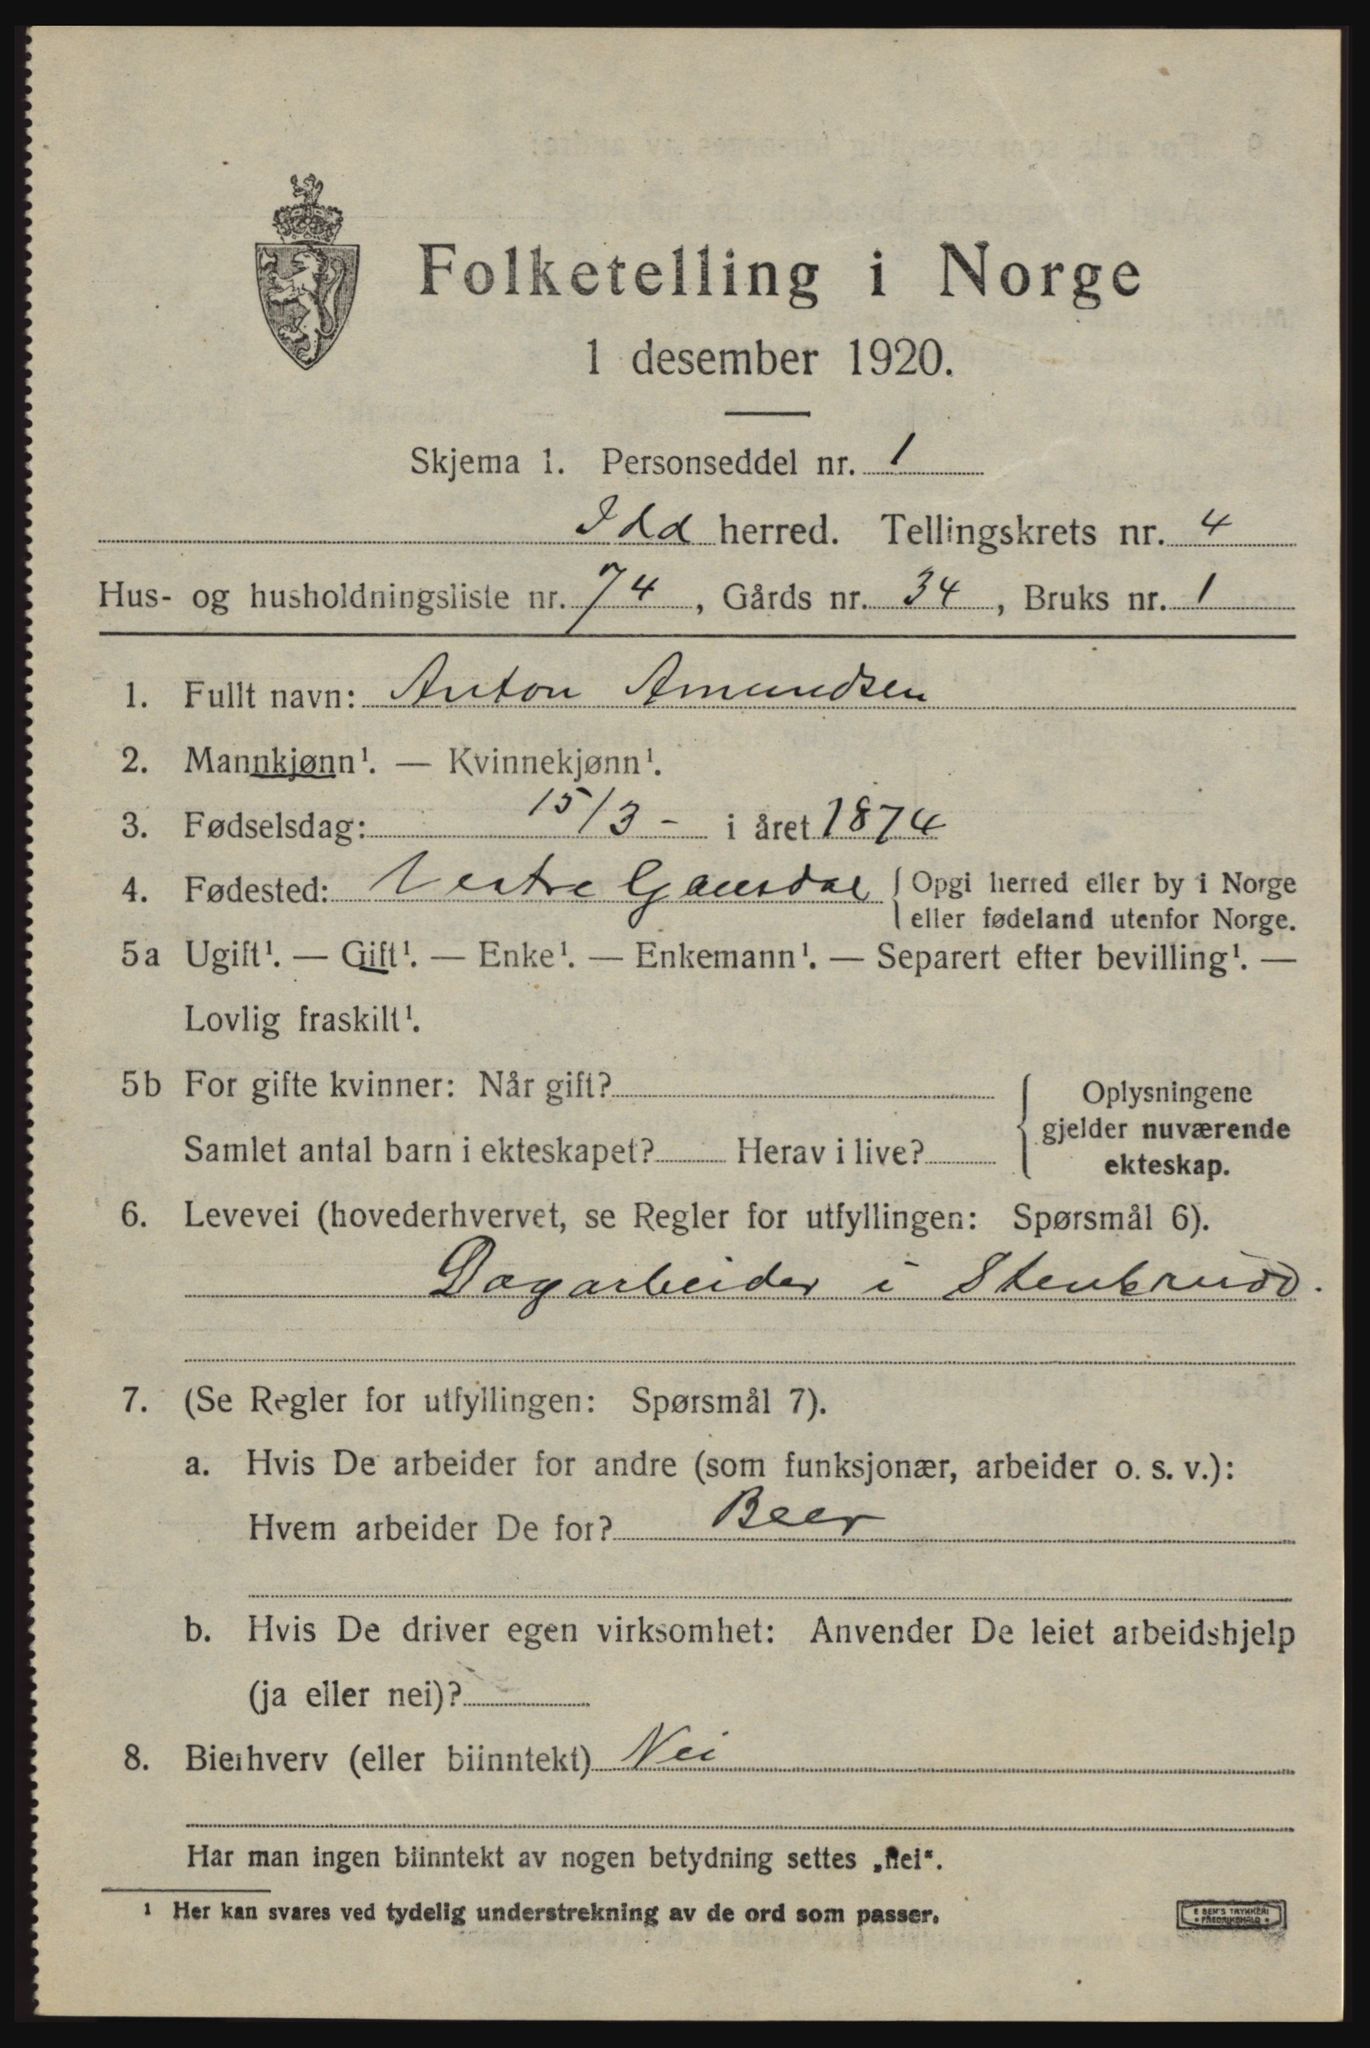 Folketelling i Norge
1 desember 1920.
Skjema 1. Personseddel nr. 1
Idd herred. Tellingskrets nr. 4
Hus- og husholdningsliste nr. 74, Gårds nr. 34, Bruks nr. 1
1. Fullt navn: Anton Amundsen
2. Mannkjønn¹. — Kvinnekjønn¹.
3. Fødselsdag: 15/3 - i året 1874
4. Fødested: Vestre Gausdal { Opgi herred eller by i Norge
eller fødeland utenfor Norge.
5a Ugift¹. — Gift¹. — Enke¹. — Enkemann¹. — Separert efter bevilling¹. —
Lovlig fraskilt¹.
5b For gifte kvinner: Når gift?
Samlet antal barn i ekteskapet? Herav i live?
{ Oplysningene
gjelder nuværende
ekteskap.
6. Levevei (hovederhvervet, se Regler for utfyllingen: Spørsmål 6).
Dagarbeider i Stenbrudd.
7. (Se Regler for utfyllingen: Spørsmål 7).
a. Hvis De arbeider for andre (som funksjonær, arbeider o. s. v.):
Hvem arbeider De for? Beer
b. Hvis De driver egen virksomhet: Anvender De leiet arbeidshjelp
(ja eller nei)?
8. Bierhverv (eller biinntekt) Nei
Har man ingen biinntekt av nogen betydning settes „nei“.
¹ Her kan svares ved tydelig understrekning av de ord som passer.
E SEM'S TRYKKERI
FREDRIKSHALD